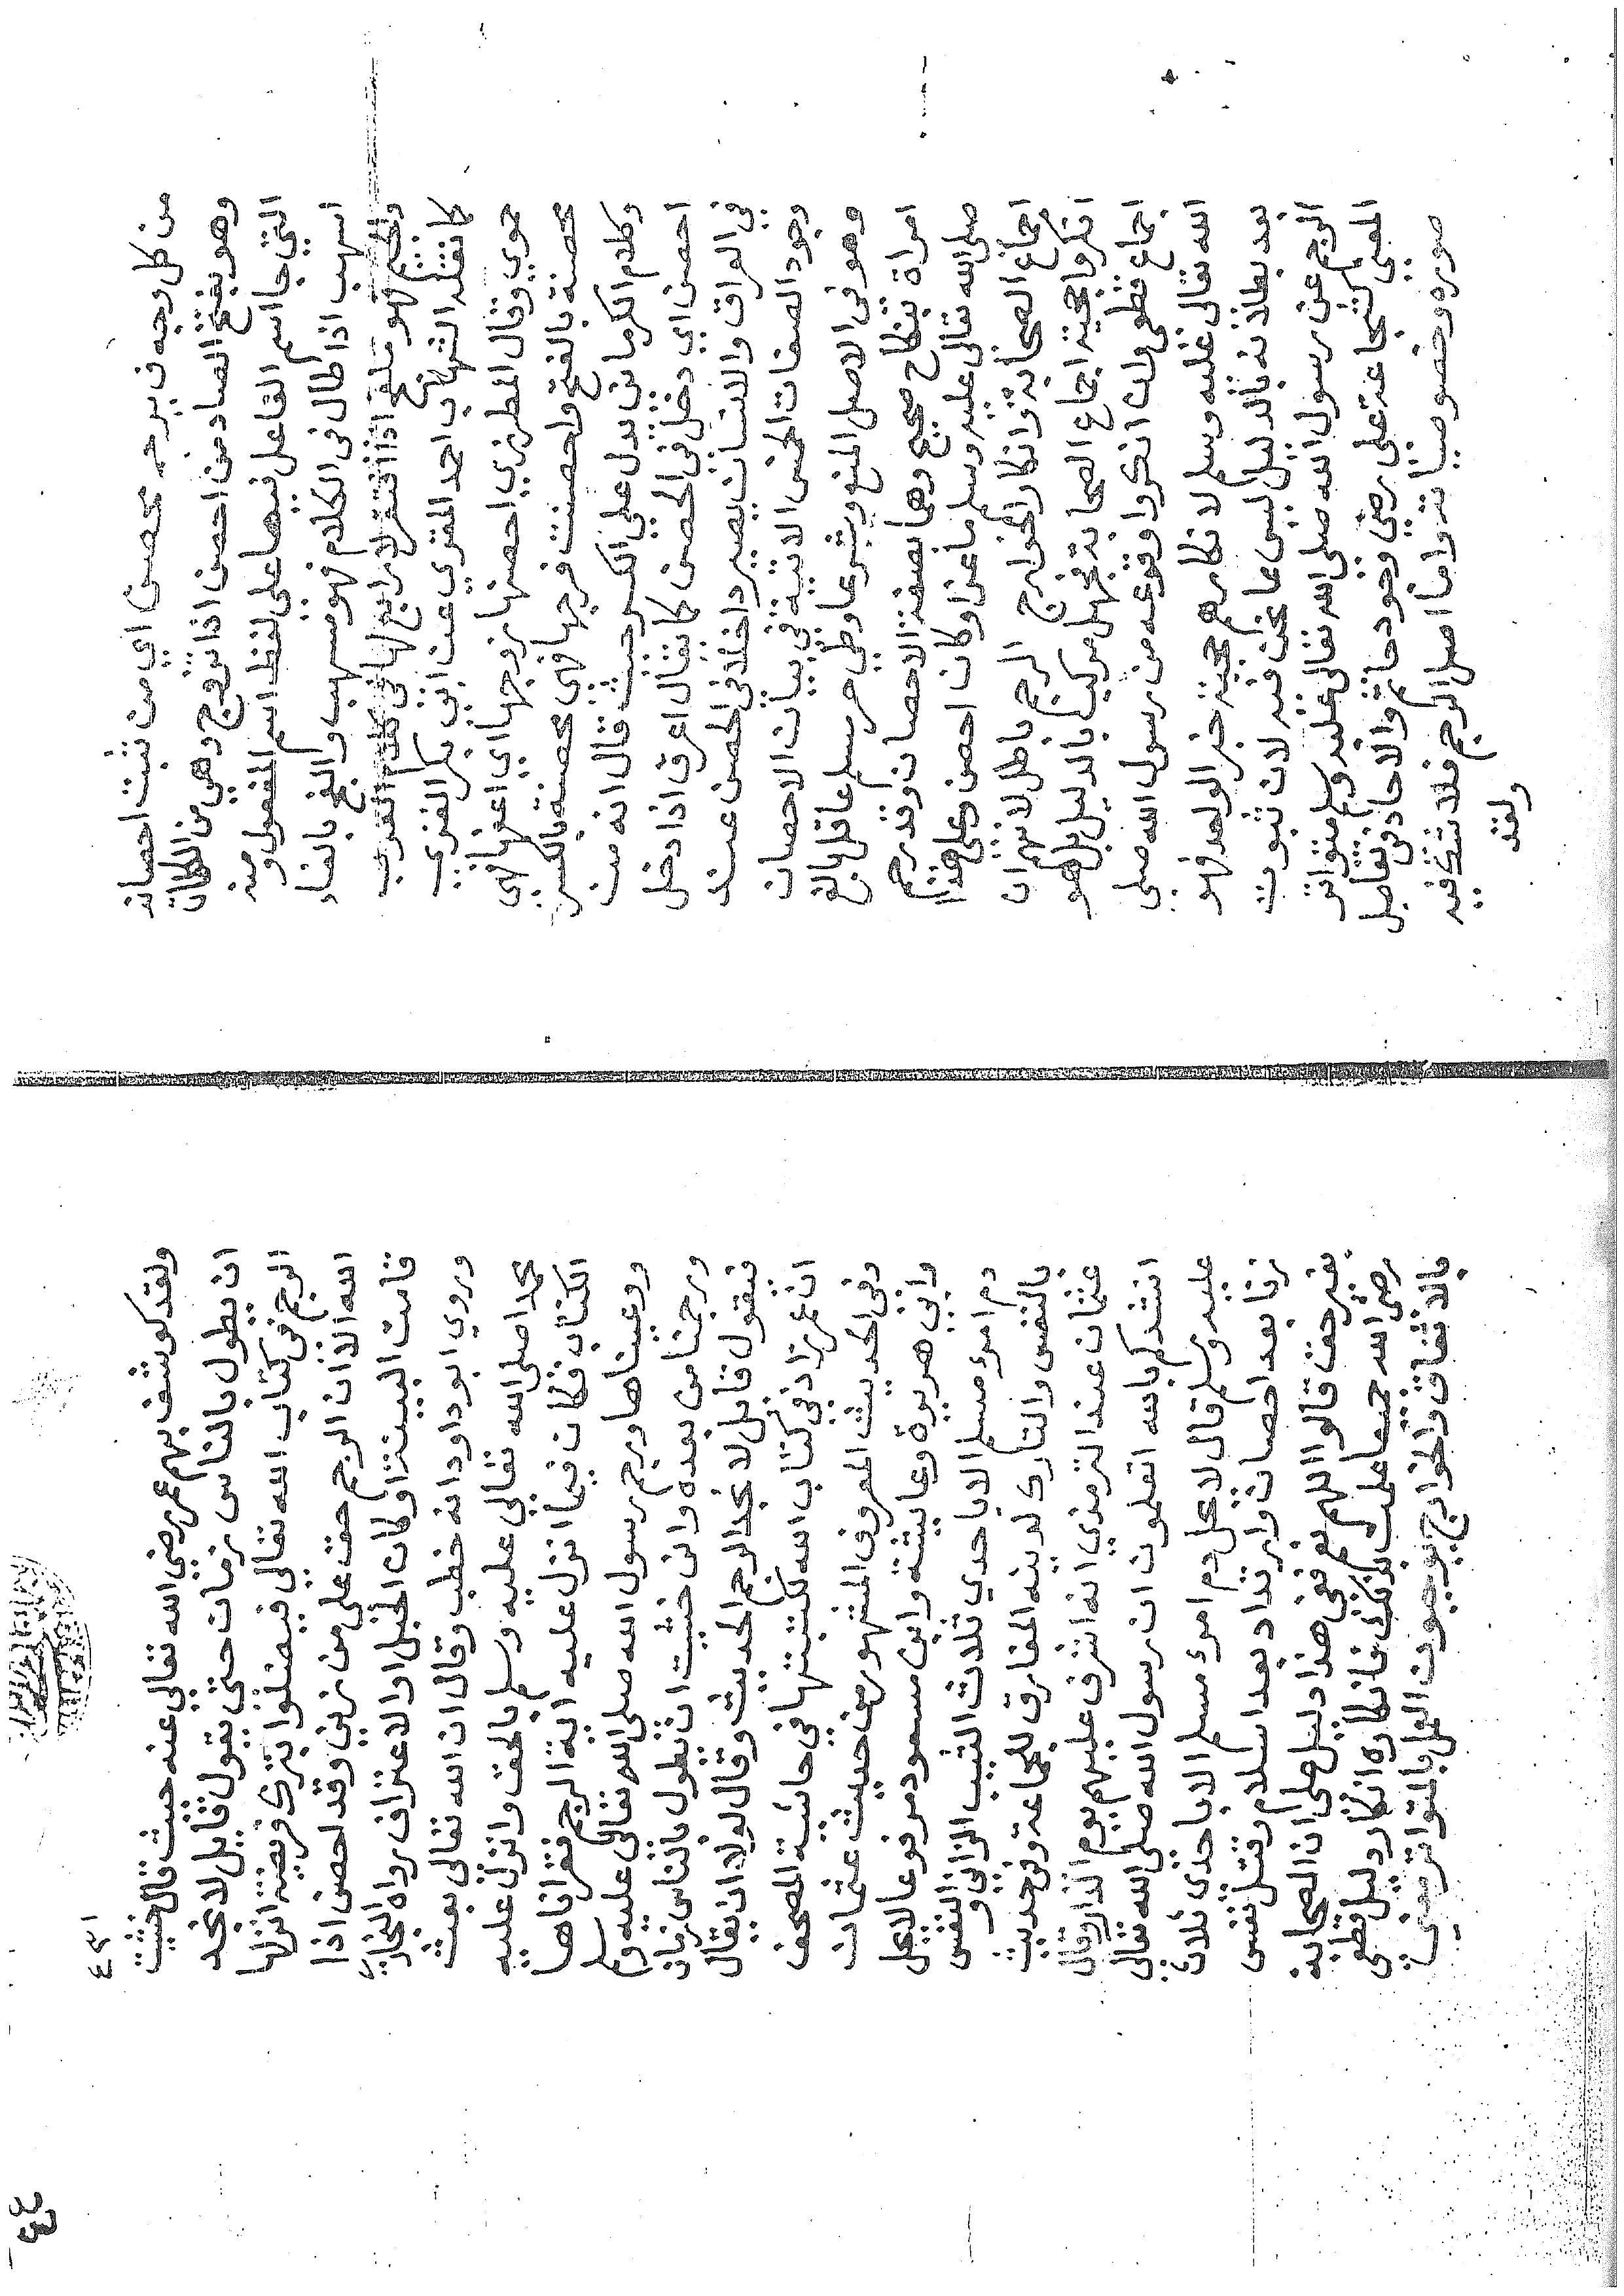 من كل وجه ف يرجم محصن اي من ثبت احصانه
وهو بفتح الصاد من احصن اذا تزوج وهي من الكلمات
التي جا اسم الفاعل فيها على لفظ اسم المفعول ومنه
اسهب اذا اطال فى الكلام فهو مسهب والفج بالفاء
والجيم فهو ملفج اذا افتقر لا رابع لها في كلام العرب
كا نقله الشهاب احمد المقري عن ابي بكر الغزي
حوي وقال المطرزي احصنها زوجها اي اعفها فهى
محصنة بالفتح واحصنت فرجها فهى محصنة بالكسر
وكلام الكرماني يدل علي الكسر حيث قال انه من
احصن اي دخل فى الحصن كا يقال اعرق اذا دخل
في العراق والانسان يصير داخلا فى الحصن عند
وجود الصفات الخمس الاتية في بيان الاحصان
وهو فى الاصل المنع وشرعا وطي حر مسلم عاقل بالغ
امراة بنكاح صحيح وهما بصفة الاحصان وقد رجم
صلى الله تعالى عليه وسلم ماعزا وكان احصن وعلى هذا
اجماع الصحابة وانكار الخوارج الرجم باطل لانهم ان
انكروا حجية اجماع الصحابة فجهل مركب بالدليل بل هو
اجماع قطعى وان انكروا وقوعه من رسول الله صلى
الله تعالى عليه وسلم لانكارهم حجية خبر الواحد فهو
بعد بطلانه بالدليل ليس مما نحن فيه لان ثبوت
الرجم عن رسول الله صلى الله تعالى عليه وسلم متواتر
المعني كشجاعة على رضي وجود حاتم والاحاد في تفاصيل
صوره وخصوصياته واما اصل الرجم فلا شك فيه
ولقد
٤٣١
ولقد كوشف بهم عمر رضي الله تعالي عنه حيث قال خشيت
ان يطول بالناس زمان حتى يقول قايل لا نجد
الرجم في كتاب الله تعالي فيضلوا بترك فريضة انزلها
الله الا وان الرجم حق على من زني وقد احصن اذا
قامت البينة او كان الحبل او الاعتراف رواه البخاري
وروي ابو داود انه خطب وقال ان الله تعالى بعث
محمدا صلى الله تعالي عليه وسلم بالحق وانزل عليه
الكتاب فكان فيما انزل عليه اية الرجم فقراناها
ووعيناها ورجم رسول الله صلى الله تعالى عليه وسلم
ورجمنا من بعده واني خشيت ان يطول بالناس زمان
فيقول قايل لا نجد الرجم الحديث وقال لولا ان يقال
ان عمر زاد في كتاب الله لكتبتها في حاشية المصحف
وفى الحديث المعروف المشهور من حديث عثمان
وابي هريرة وعايشة وابن مسعود مرفوعا لايحل
دم امرؤ مسلم الا باحدي ثلاث الثيب الزاني والنفس
بالنفس والتارك لدينه المفارق للجماعة وفى حديث
عثمان عند الترمذي انه اشرف عليهم يوم الدار وقال
انشدكم بالله اتعلمون ان رسول الله صلى الله تعالى
عليه وسلم قال لا يحل دم امرؤ مسلم الا باحدى ثلاث
زنا بعد احصان وارتداد بعد اسلام وقتل نفس
بغير حق قالوا اللهم نعم ففى هذا دليل على ان الصحابة
رضى الله جميعا علمت بذلك فانكاره انكار دليل قطعى
بالاتفاق والخوارج يوجبون العمل بالمتواتر معنى